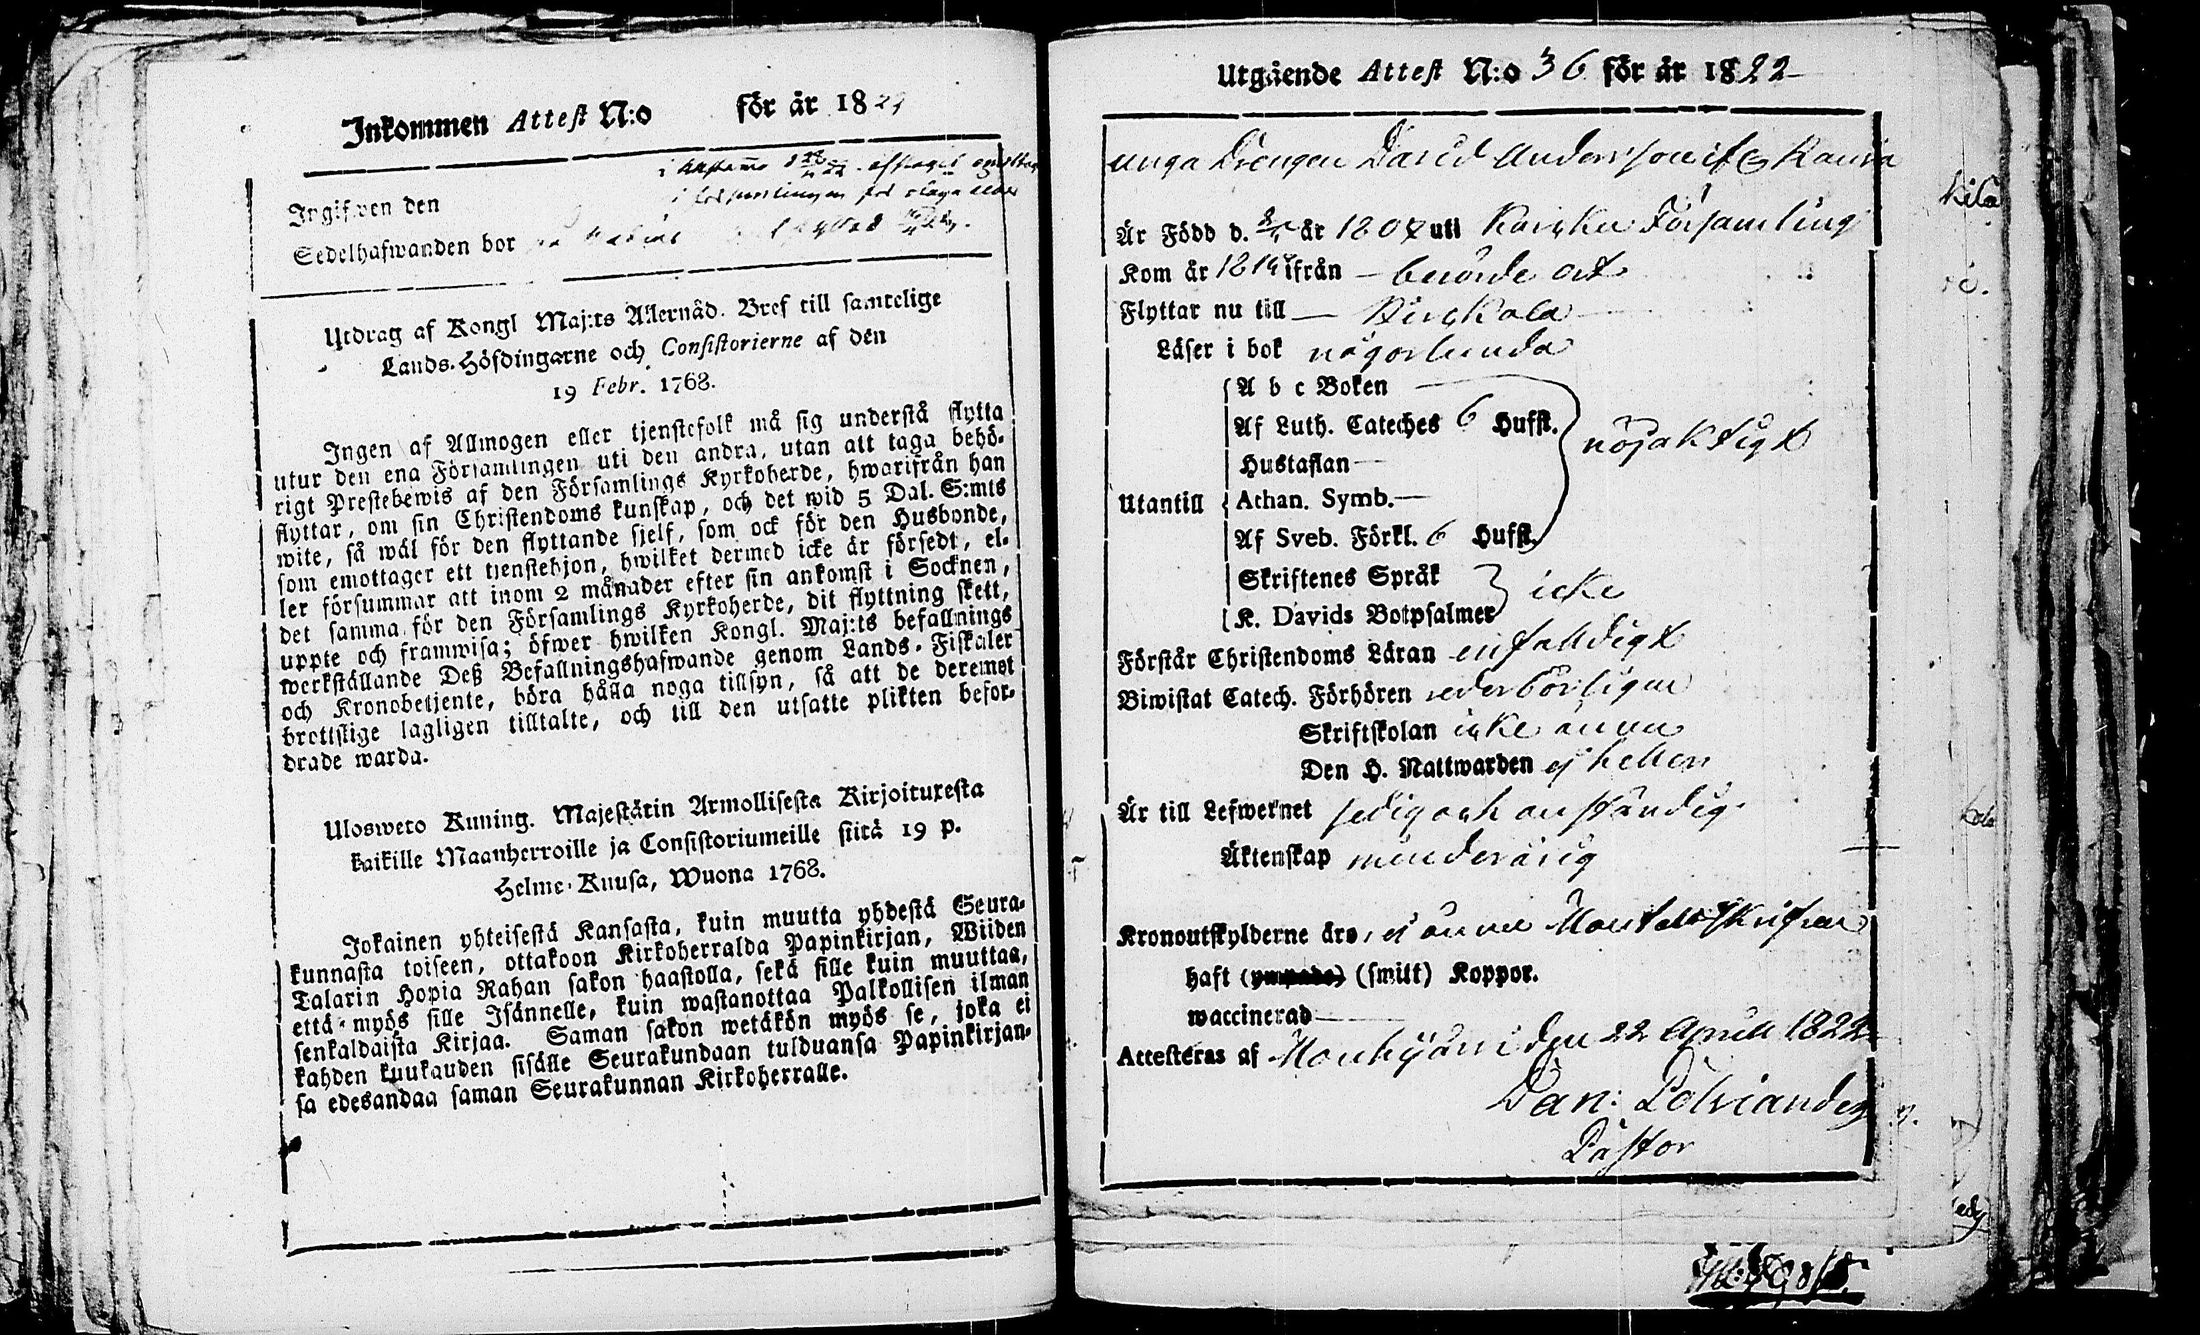 Inkommen Attest N:o för år 1822
Ingifwen den
Sedelhafwanden bor
Utdrag af Kongl Maj:ts Allernåd. Bref till samtelige
Lands-Höfdingarne och Consistorierne af den
19 Febr. 1768.
Ingen af Allmogen eller tjenstefolk må sig understå flytta
utur den ena Församlingen uti den andra, utan att taga behö-
rigt Prestebewis af den Församlings Kyrkoherde, hwarifrån han
flyttar, om sin Christendoms kunskap, och det wid 5 Dal. S:mts
wite, så wäl för den flyttande sjelf, som ock för den Husbonde,
som emottager ett tjenstehjon, hwilket dermed icke är försedt, el-
ler försummar att inom 2 månader efter sin ankomst i Socknen,
det samma för den Församlings Kyrkoherde, dit flyttning skett,
uppte och framwisa; öfwer hwilken Kongl. Maj:ts befallnings
werkställande Deß Befallningshafwande genom Lands-Fiskaler
och Kronobetjente, böra hålla noga tillsyn, så att de deremot
brottslige lagligen tilltalte, och till den utsatte plikten befor-
drade warda.
Ulosweto Kuning. Majestätin Armollisesta Kirjoituxesta
kaikille Maanherroille ja Consistoriumeille siitä 19 p.
Helme-Kuusa, Wuona 1768.
Jokainen yhteisestä Kansasta, kuin muutta yhdestä Seura-
kunnasta toiseen, ottakoon Kirkoherralda Papinkirjan, Wiiden
Talarin Hopia Rahan sakon haastolla, sekä sille kuin muuttaa,
että myös sille Isännelle, kuin wastanottaa Palkollisen ilman
senkaldaista Kirjaa. Saman sakon wetäkön myös se, joka ei
kahden kuukauden sisälle Seurakundaan tulduansa Papinkirjan-
sa edesandaa saman Seurakunnan Kirkoherralle.
Utgående Attest N:o 36 för år 1822
unga Drengen David Andersson if
Är Född d. år 1807 uti Församling
Kom år ifrån berörde ort
Flyttar nu till Kirckala
Läser i bok någorlunda
A b c Boken
Af Luth. Cateches 6 Hufst.
nöjaktigt
Hustaflan
Utantill Athan. Symb.
Af Sveb. Förkl. 6 Hufst.
Skriftenes Språk
icke
K. Davids Botpsalmer
Förstår Christendoms Läran enfaldigt
Biwistat Catech. Förhören wederbörligen
Skriftskolan icke ännu
Den H. Nattwarden ej heller
Är till Lefwernet sedig och anständig
Äktenskap minderårig
Kronoutskylderne äro, ej ännu Mantalsskrifven
haft (ympade) (smitt) Koppor.
waccinerad
Attesteras af Mouhijärvi den 22 April 1822
Dan: Polviander
Pastor